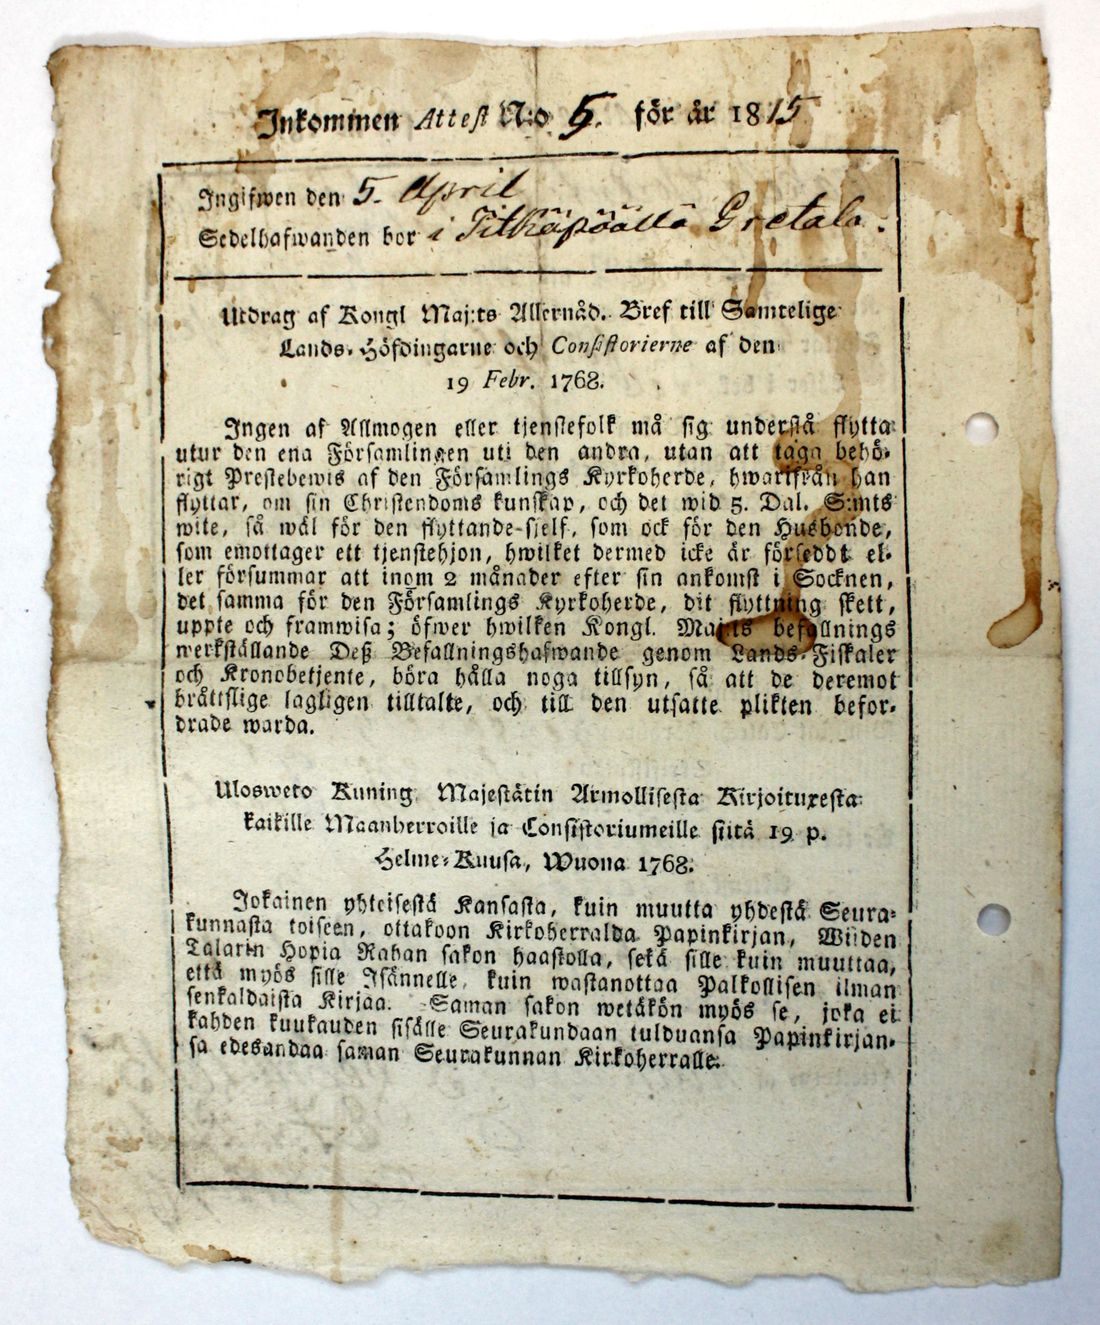 Inkommen Attest N:o 5. för år 1815
Ingifwen den 5. April
Sedelhafwanden bor i Pitkäpöällä Gretala.
Utdrag af Kongl Maj:ts Allernåd. Bref till Samtelige
Lands-Höfdingarne och Consistorierne af den
19 Febr. 1768.
Ingen af Allmogen eller tjenstefolk må sig understå flytta
utur den ena Församlingen uti den andra, utan att taga behö-
rigt Prestebewis af den Församlings Kyrkoherde, hwarifrån han
flyttar, om sin Christendoms kunskap, och det wid 5. Dal. S:mts
wite, så wäl för den flyttande sjelf, som ock för den Husbonde,
som emottager ett tjenstehjon, hwilket dermed icke är försedt el-
ler försummar att inom 2 månader efter sin ankomst i Socknen,
det samma för den Församlings Kyrkoherde, dit flyttning skett,
uppte och framwisa; öfwer hwilken Kongl. Maj:ts befallnings
werkställande Deß Befallningshafwande genom Lands-Fiskaler
och Kronobetjente, böra hålla noga tillsyn, så att de deremot
bråttslige lagligen tilltalte, och till den utsatte plikten befor-
drade warda.
Ulosweto Kuning. Majestätin Armollisesta Kirjoituxesta
kaikille Maanherroille ja Consistoriumeille siitä 19 p.
Helme-Kuusa, Wuona 1768.
Jokainen yhteisestä Kansasta, kuin muutta yhdestä Seura-
kunnasta toiseen, ottakoon Kirkoherralda Papinkirjan, Wiiden
Talarin Hopia Rahan sakon haastolla, sekä sille kuin muuttaa,
että myös sille Isännelle, kuin wastanottaa Palkollisen ilman
senkaldaista Kirjaa. Saman sakon wetäkön myös se, joka ei
kahden kuukauden sisälle Seurakundaan tulduansa Papinkirjan-
sa edesandaa saman Seurakunnan Kirkoherralle.